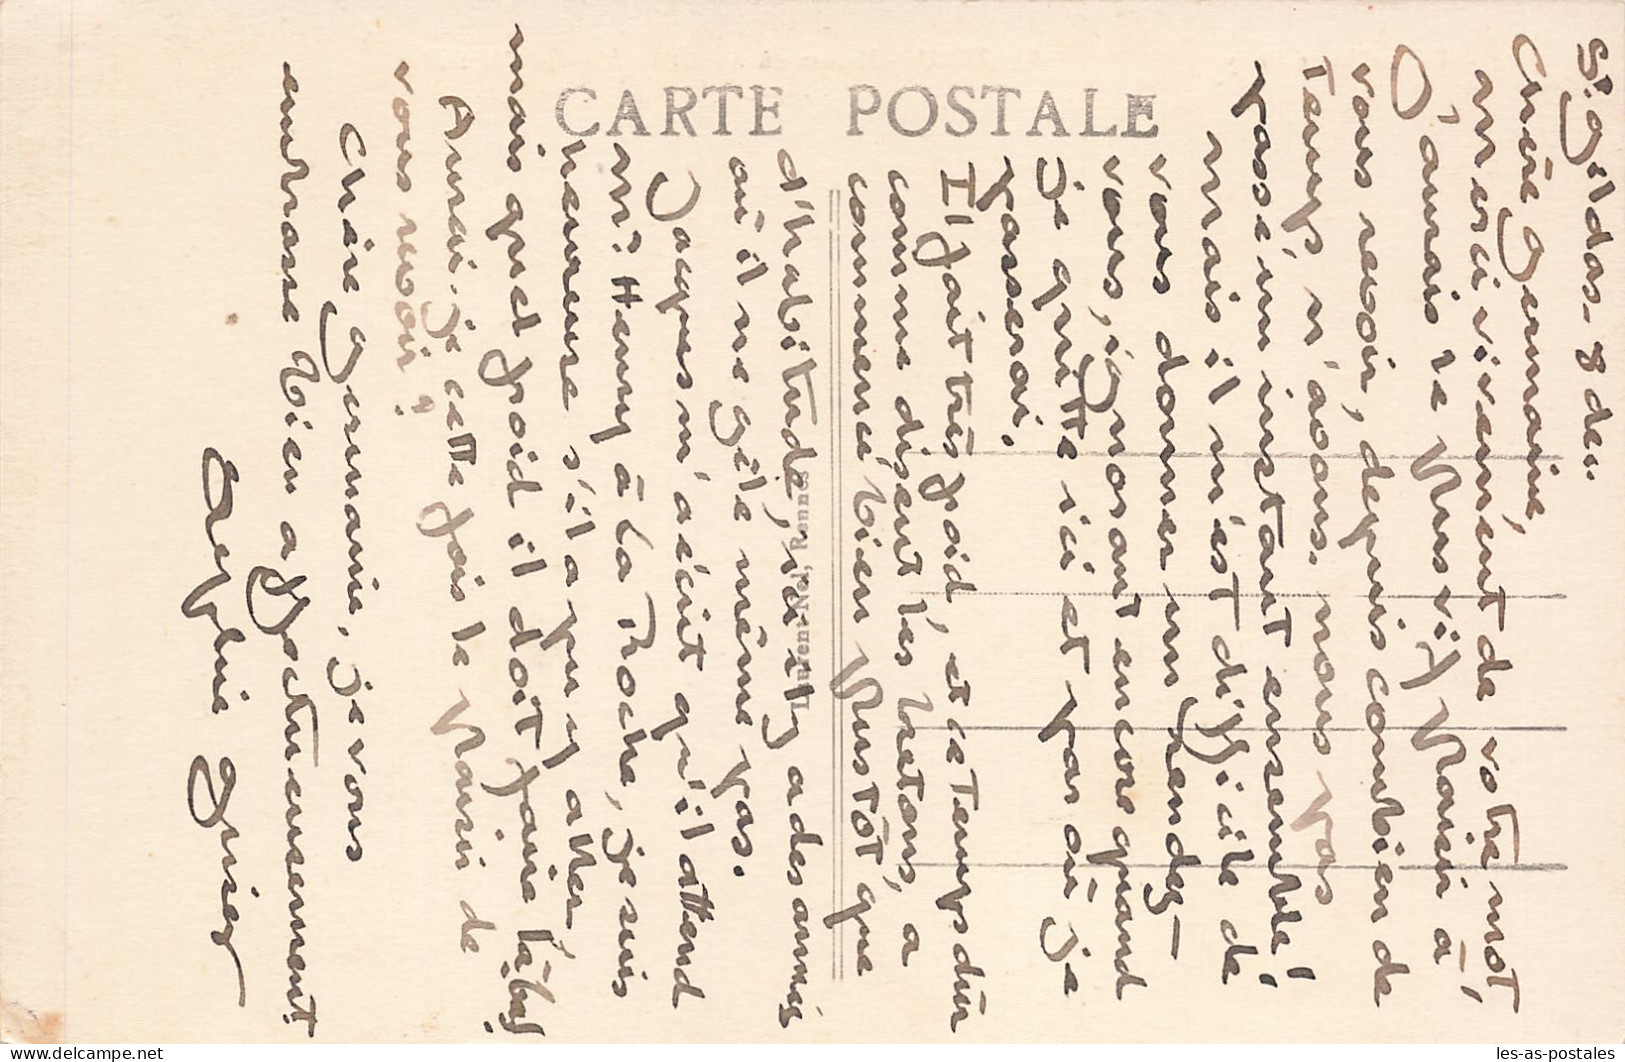 CARTE POSTALE
Laurent-Nel, Rennes
St. Gildas - 8 dec.
Chère Germaine,
merci vivement de votre mot,
J'aurais le plus vif plaisir à
vous revoir, depuis combien de
temps n'avons-nous pas
passé un instant ensemble!
mais il m'est difficile de
vous donner un rendez-
vous, ignorant encore quand
je quitte ici et par où je
passerai.
Il fait très froid, et ce temps dur
comme disent les bretons, a
commencé bien plus tôt que
d'habitude, ici il y a des années
où il ne gèle même pas.
Jacques m'a écrit qu'il attend
mr. Henry à la Roche, je suis
heureuse s'il a pu y aller,
mais quel froid il doit faire là-bas!
Aurai-je cette fois le plaisir de
vous revoir?
Chère Germaine, je vous
embrasse bien affectueusement.
les-as-postales